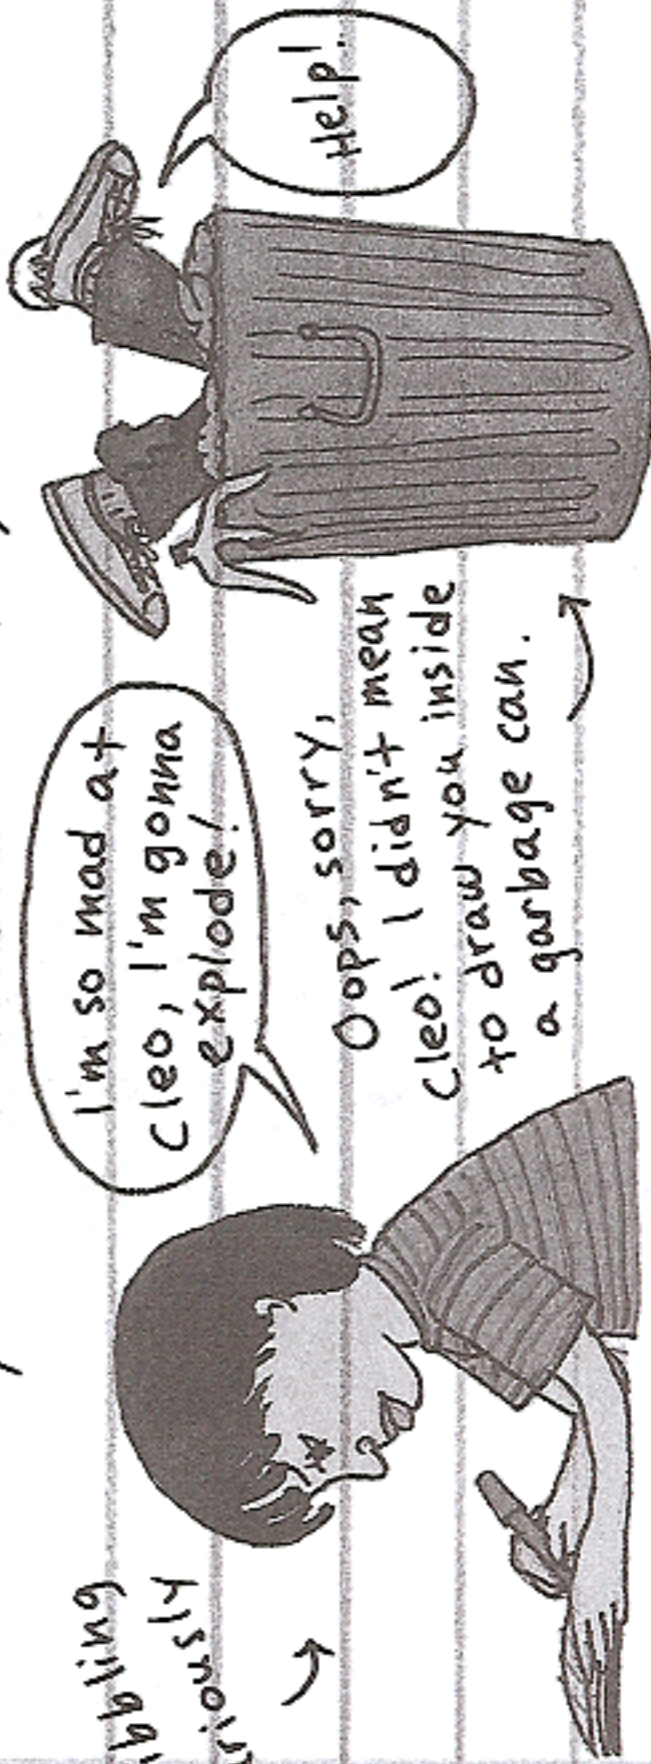 I'm so mad at
Cleo, I'm gonna
explode!
Oops, sorry,
Cleo! I didn't mean
to draw you inside
a garbage can.
Help!